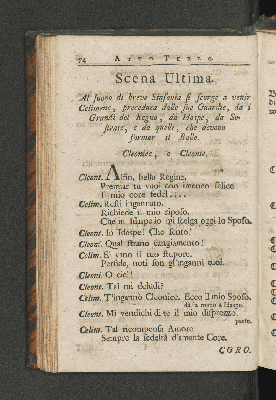 74 ATTO TERZO.
Scena Ultima.
Al suono di breve Sinfonia si scorge a venir
Celimene, preceduta dalle sue Guardie, da i
Grandi del Regno, da Idaspe, da So-
strata, e da quelli, che devono
formar il Ballo.
Cleonice, e Cleonte.
Cleont. Alfin, bella Regina,
Premiar tu vuoi con imeneo felice
Il mio core fedel....
Celim. Resti ingannato.
Richiede il mio riposo,
Che in Idaspe io mi scelga oggi lo Sposo.
Cleont. Io Idaspe! Che sento!
Qual strano cangiamento!
Celim. E' vano il tuo stupore.
Perfida, noti son gl'inganni tuoi.
Cleoni. O ciel!
Cleont. Tal mi deludi?
Celim. T'ingannò Cleonice. Ecco il mio Sposo.
dà la mano a Idaspe.
Cleont. Mi vendichi di te il mio disprezzo.
parte.
Celim. Tal ricompensa Amore
Sempre la fedeltà d'amante Core.
CORO.